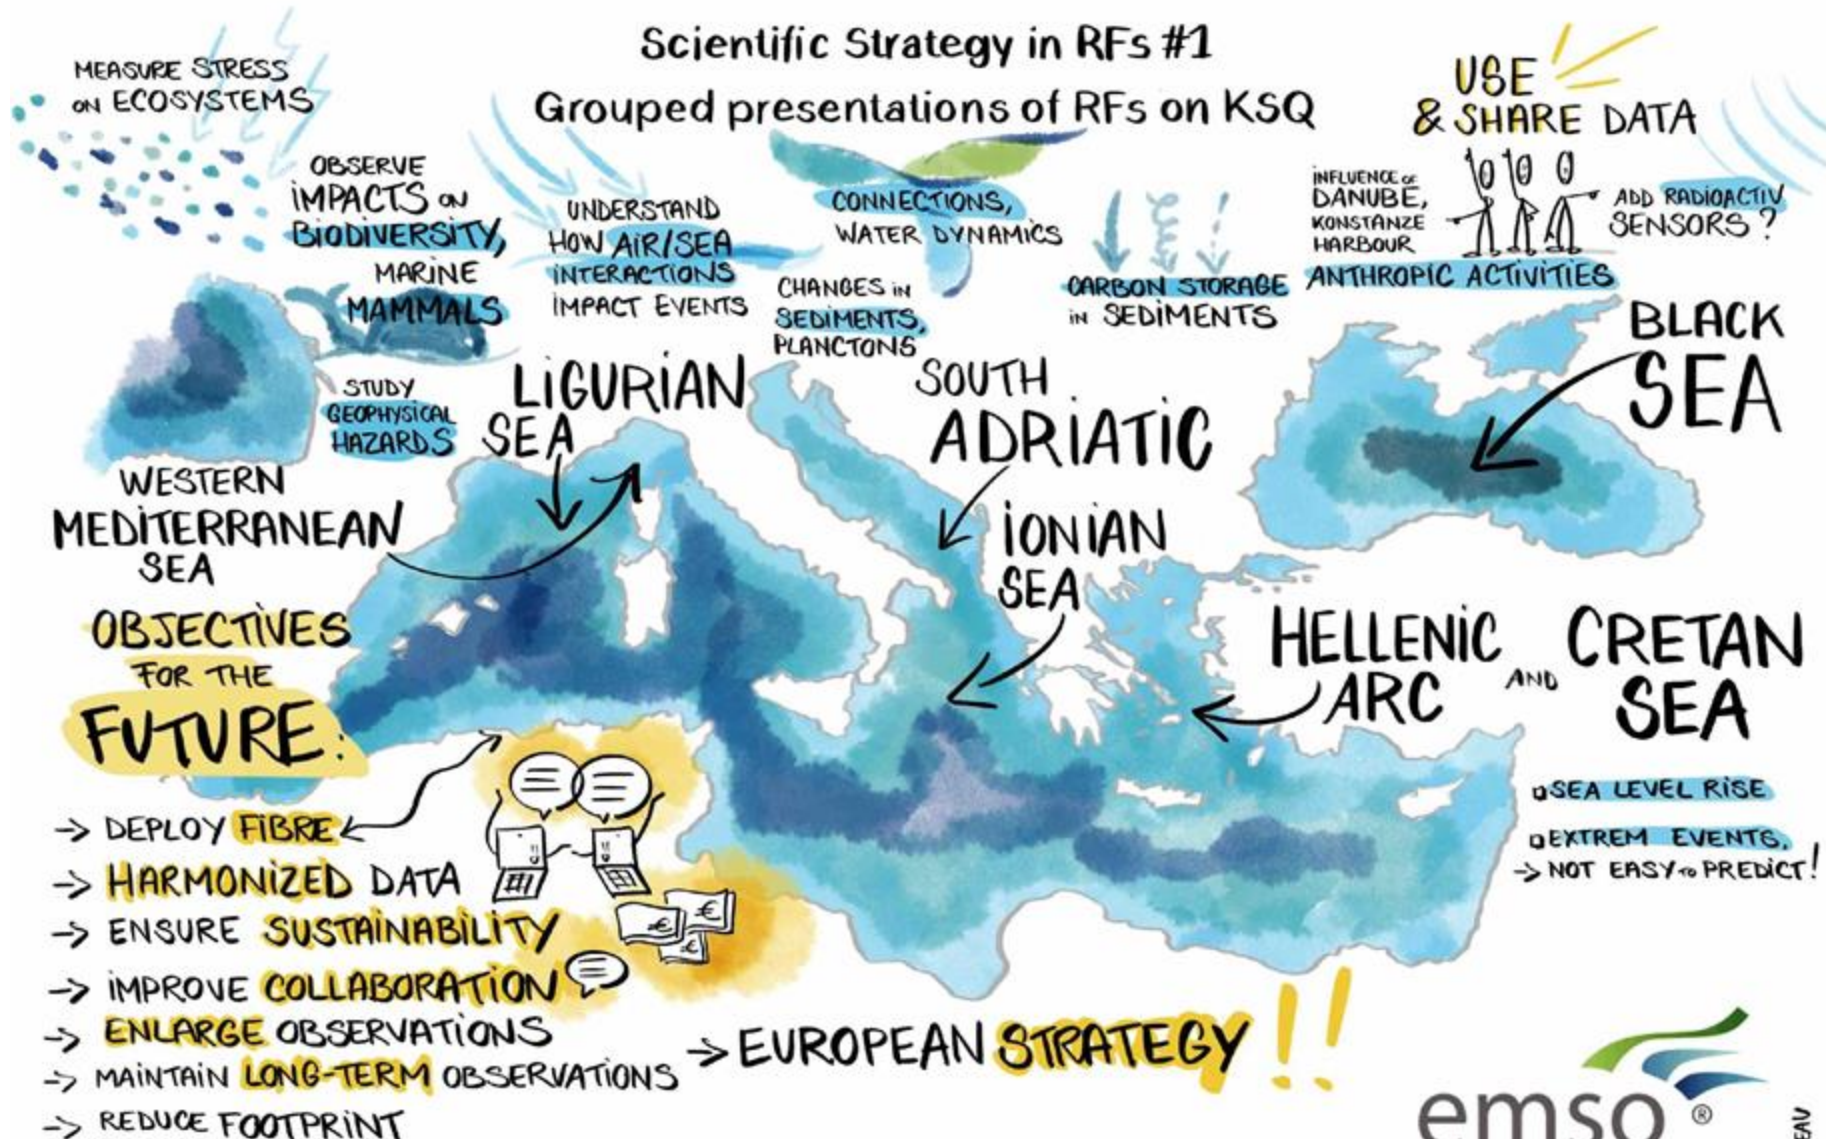 Scientific Strategy in RFs #1
Grouped presentations of RFs on KSQ
MEASURE STRESS
ON ECOSYSTEMS
OBSERVE
IMPACTS ON
BIODIVERSITY,
MARINE
MAMMALS
STUDY
GEOPHYSICAL
HAZARDS
UNDERSTAND
HOW AIR/SEA
INTERACTIONS
IMPACT EVENTS
CONNECTIONS,
WATER DYNAMICS
CHANGES IN
SEDIMENTS,
PLANCTONS
CARBON STORAGE
IN SEDIMENTS
USE
& SHARE DATA
INFLUENCE OF
DANUBE,
KONSTANZE
HARBOUR
ADD RADIOACTIV
SENSORS ?
ANTHROPIC ACTIVITIES
BLACK
SEA
LIGURIAN
SEA
SOUTH
ADRIATIC
WESTERN
MEDITERRANEAN
SEA
IONIAN
SEA
HELLENIC
ARC
AND
CRETAN
SEA
SEA LEVEL RISE
EXTREM EVENTS,
→ NOT EASY TO PREDICT!
OBJECTIVES
FOR THE
FUTURE:
→ DEPLOY FIBRE
→ HARMONIZED DATA
→ ENSURE SUSTAINABILITY
€
€
€
→ IMPROVE COLLABORATION
→ ENLARGE OBSERVATIONS
→ MAINTAIN LONG-TERM OBSERVATIONS
→ REDUCE FOOTPRINT
→ EUROPEAN STRATEGY !!
emso ®